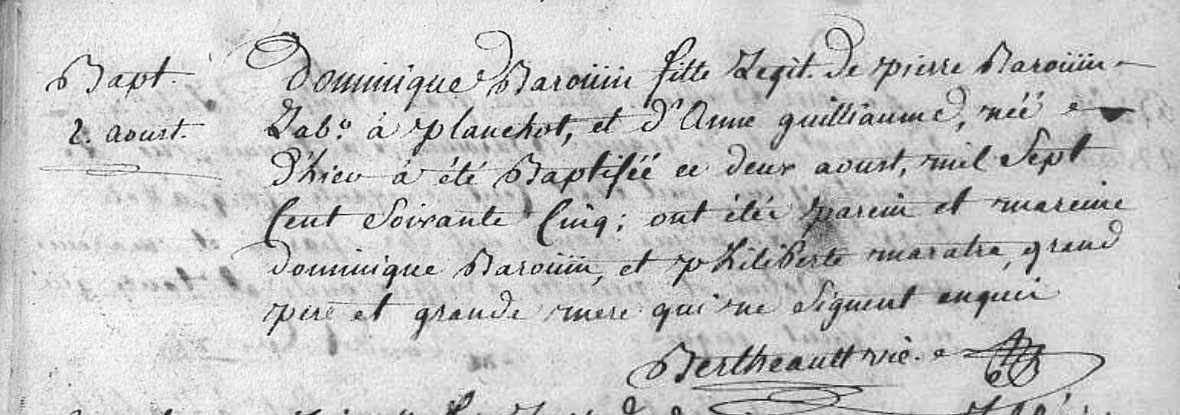 Bapt.
2. aoust.
dominique Barouin fille Legit. de pierre Barouin
Labr. à planchot, et d'Anne guilliaume, née
d'hier à été Baptisée ce deux aoust, mil Sept
Cent Soixante Cinq; ont étés parein et mareine
dominique Barouin, et philiberte maratra, grand
pere et grande mere qui ne Signent enquis
Bertheault vic.